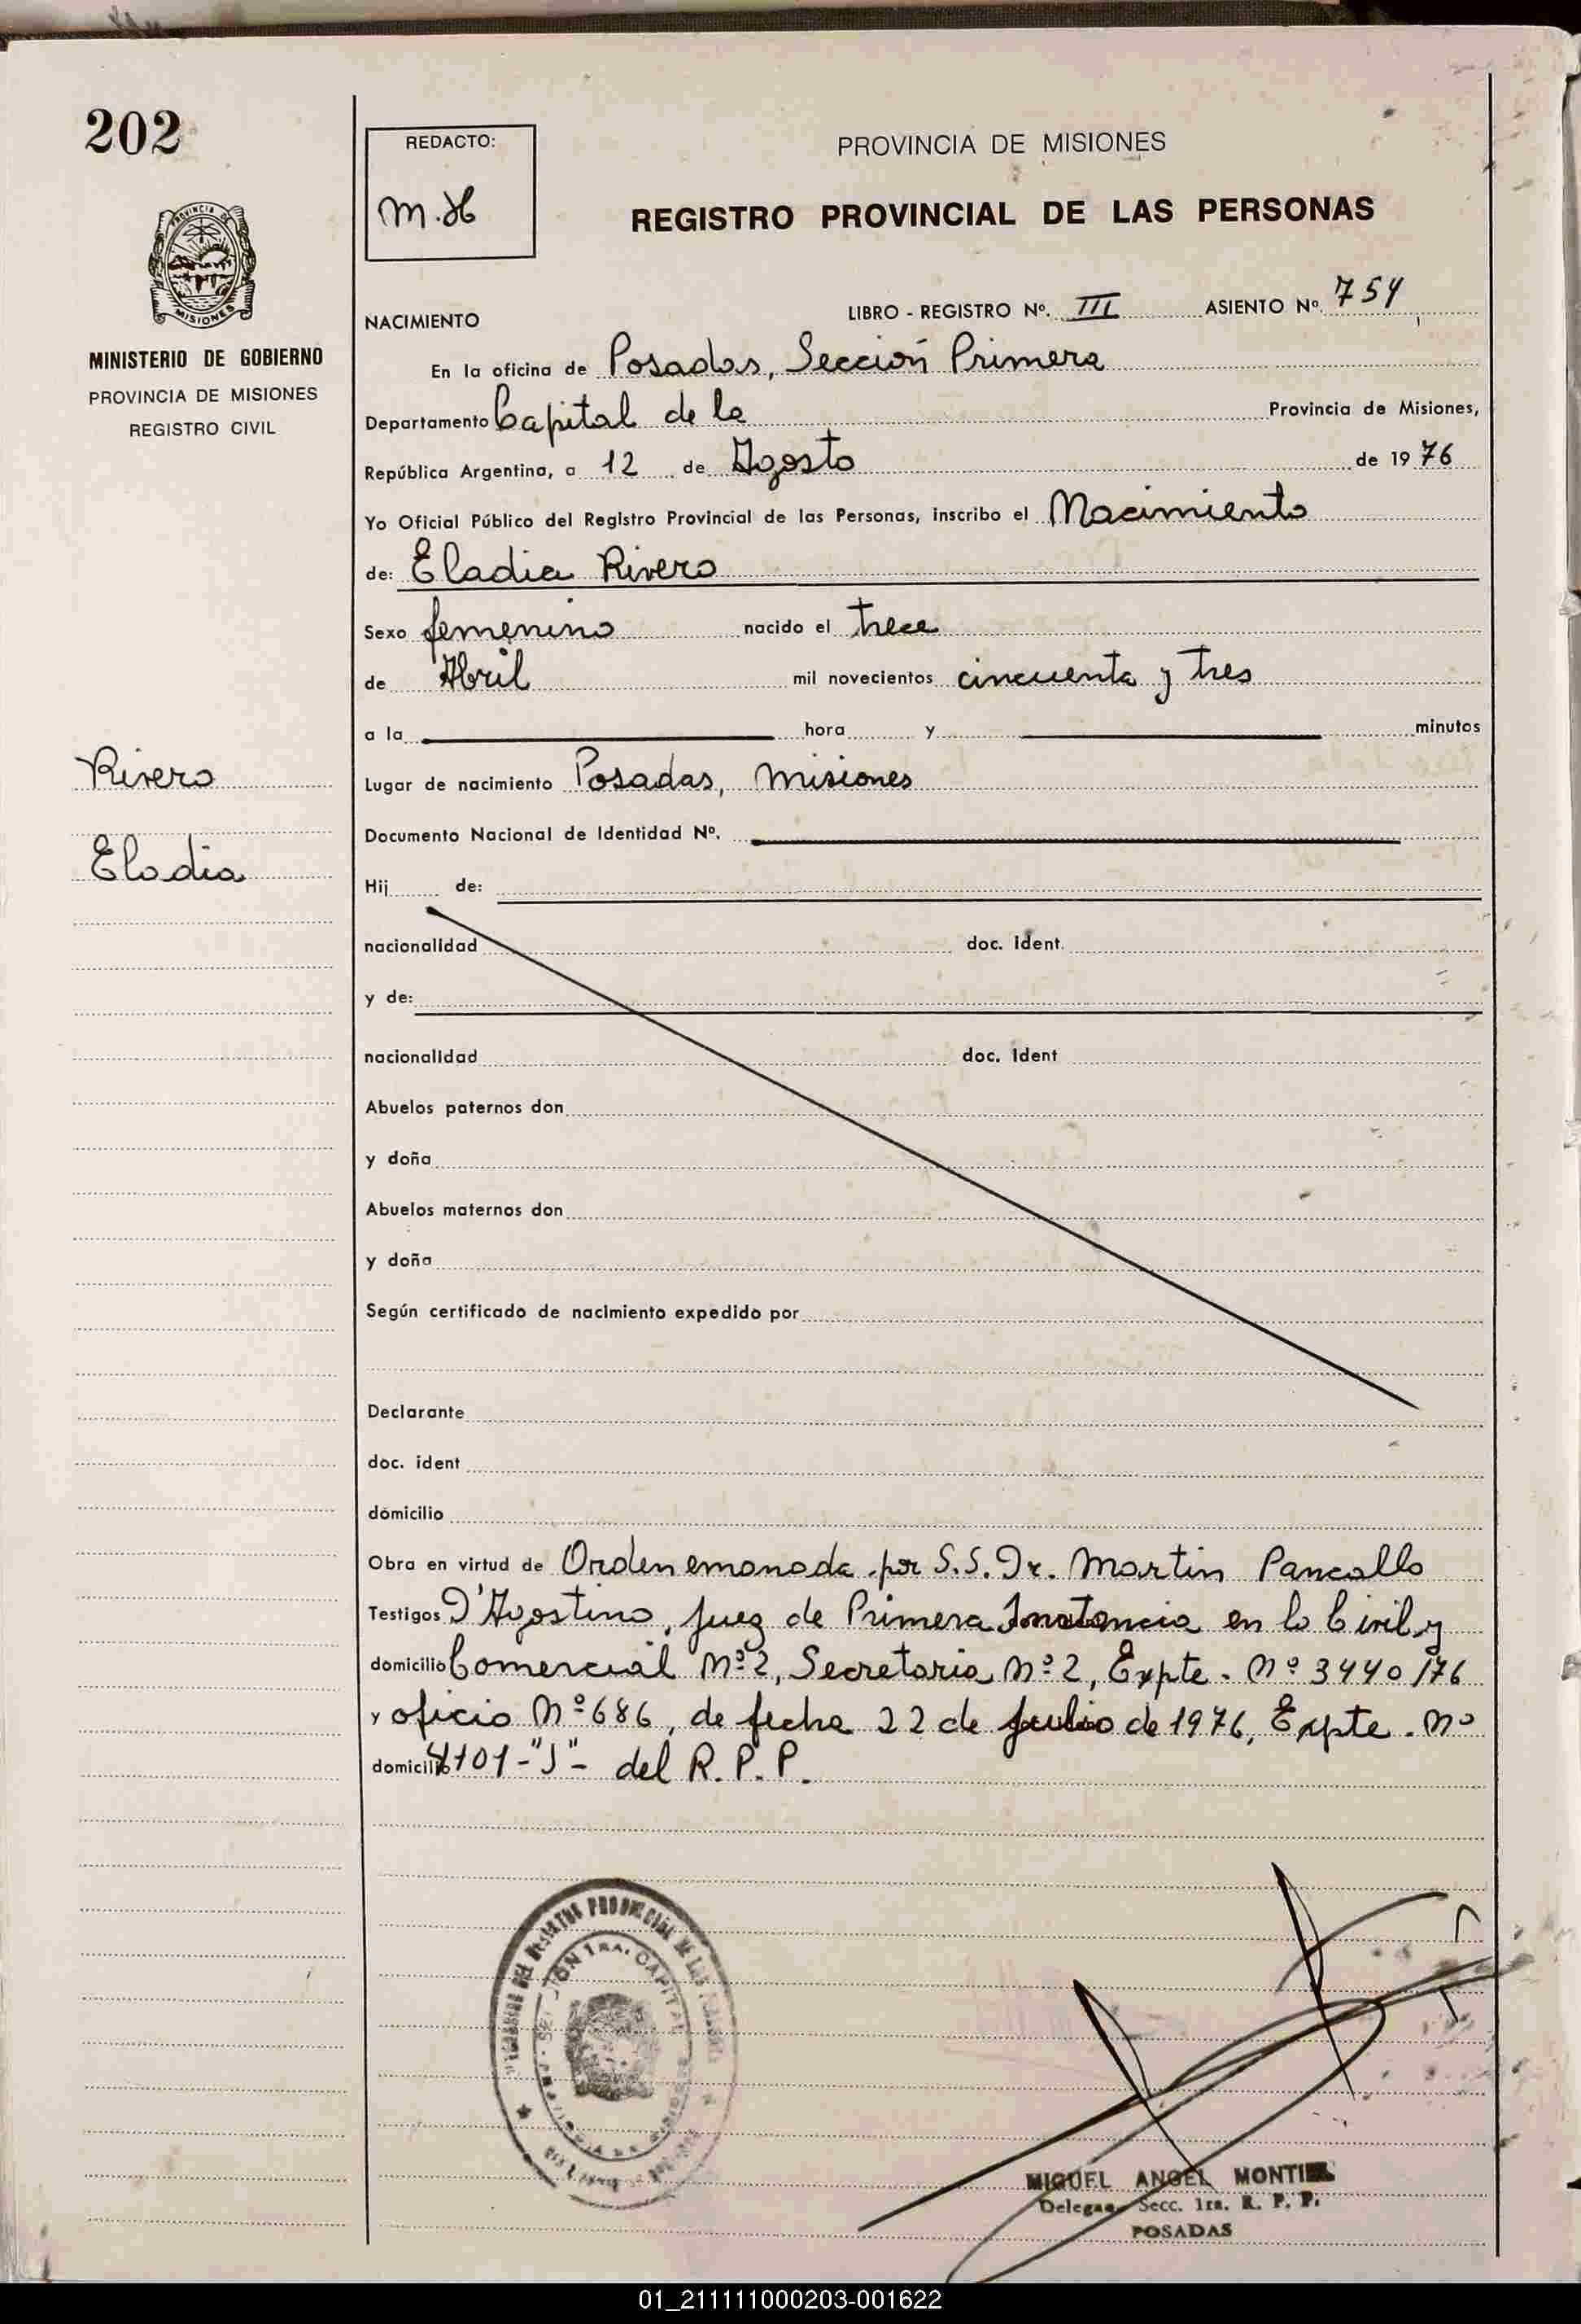 202
PROVINCIA DE
MISIONES
MINISTERIO DE GOBIERNO
PROVINCIA DE MISIONES
REGISTRO CIVIL
Rivero
Eladia
REDACTO:
M.H
PROVINCIA DE MISIONES
REGISTRO PROVINCIAL DE LAS PERSONAS
NACIMIENTO LIBRO - REGISTRO Nº. III ASIENTO Nº. 754
En la oficina de Posadas, Sección Primera
Departamento Capital de la Provincia de Misiones,
República Argentina, a 12 de Agosto de 1976
Yo Oficial Público del Registro Provincial de las Personas, inscribo el Nacimiento
de: Eladia Rivero
Sexo femenino nacido el trece
de Abril mil novecientos cincuenta y tres
a la hora y minutos
Lugar de nacimiento Posadas, Misiones
Documento Nacional de Identidad Nº.
Hij de:
nacionalidad doc. ident.
y de:
nacionalidad doc. ident
Abuelos paternos don
y doña
Abuelos maternos don
y doña
Según certificado de nacimiento expedido por
Declarante
doc. ident
domicilio
Obra en virtud de Orden emanada por S.S. Dr. Martin Pancallo
Testigos D'Agostino, Juez de Primera Instancia en lo Civil y
domicilio Comercial Nº 2, Secretaria Nº 2, Expte. Nº 3440/76
y oficio Nº 686, de fecha 22 de Julio de 1976, Expte. Nº
domicilio 4101-"J"- del R.P.P.
SECCION 1RA. CAPITAL
MIGUEL ANGEL MONTIEL
Delegado Secc. 1ra. R. P. P.
POSADAS
01_211111000203-001622